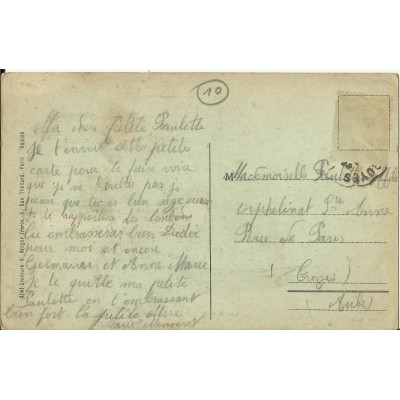 10
Ma chère petite Paulette
je t'envoie cette petite
carte pour te faire voire
que je ne t'oublie pas je
pense que tu es bien sage
je te rapporterai des bonbons
tu embrasseras bien
pour moi et encore
Germaine et Anna Marie
je te quitte ma petite
Paulette en t'embrassant
bien fort ta petite
Mademoiselle
orphelinat Ste Anne
Place de Paris
(Troyes)
Aube